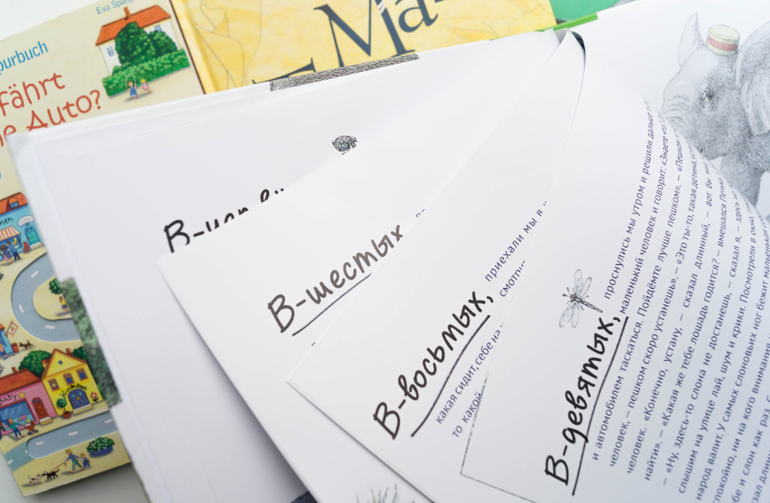 Eva
purbuch
fährt
Auto?
Ma-
В-шестых
В-восьмых, приехали мы в
какая сидит, себе на
то какой
В-девятых, проснулись мы утром и решили дальше
маленький человек и говорит: «Знаете
и автомобилем таскаться. Пойдёмте лучше пешком». – «Пешком
человек, – пешком скоро устанешь». – «Это ты-то, такая детина,
человек. «Конечно, устану, – сказал длинный, – вот бы
найти». – «Какая же тебе лошадь годится? – вмешался
– «Ну, здесь-то слона не достанешь, – сказал я, – здесь
слышим на улице лай, шум и крики. Посмотрели в окно
народ валит. У самых слоновьих ног бежит
спокойно, ни на кого внимания
и слон как раз